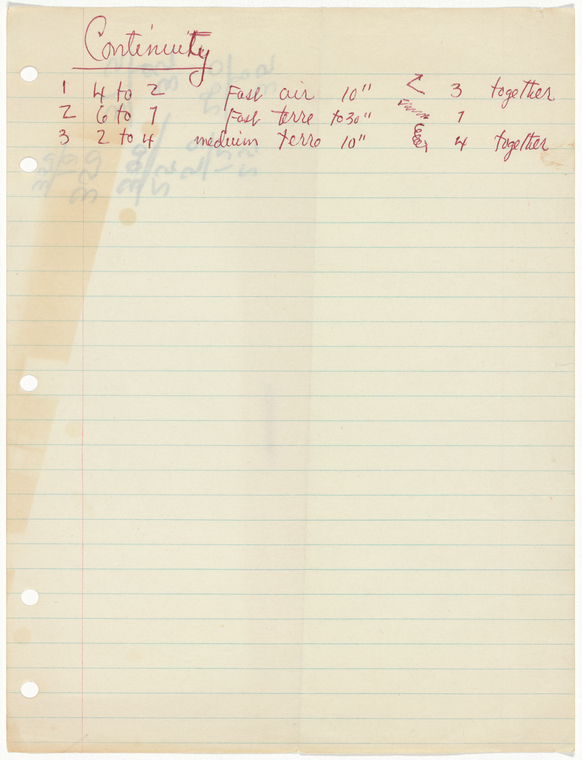 Continuity
1 4 to 2 Fast air 10" < 3 together
2 6 to 7 Fast terre to 30" 1
3 2 to 4 medium terre 10" 4 together